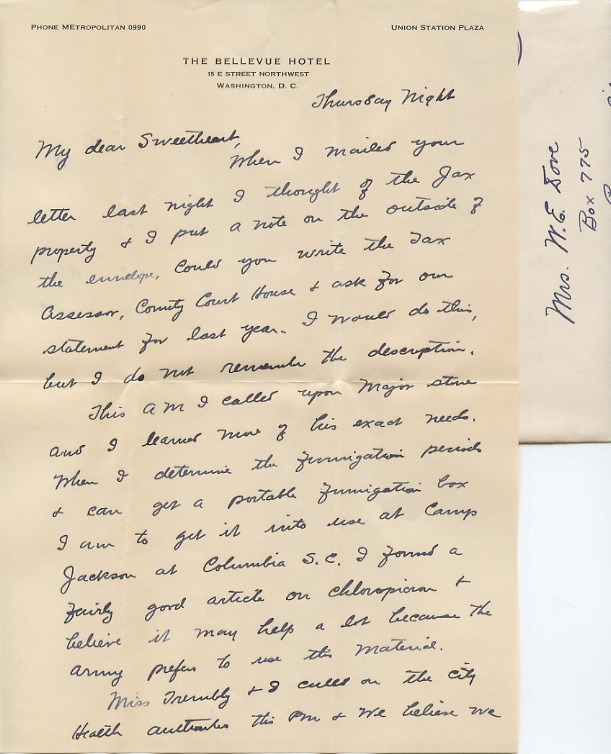 PHONE METROPOLITAN 0990
UNION STATION PLAZA
THE BELLEVUE HOTEL
15 E STREET NORTHWEST
WASHINGTON, D. C.
Thursday Night
My dear Sweetheart,
When I mailed your
letter last night I thought of the Tax
property & I put a note on the outside of
the envelope. Could you write the Tax
Assessor, County Court House & ask for our
statement for last year. I would do this,
but I do not remember the description.
This AM I called upon Major Stone
and I learned more of his exact needs.
When I determine the fumigation periods
& can get a portable fumigation box
I am to get it into use at Camp
Jackson at Columbia S.C. I found a
fairly good article on chloropicron &
believe it may help a lot because the
army prefers to use this material.
Miss Trembly & I called on the city
Health authorities this PM & We believe we
Mrs. W.E. Dove
Box 775